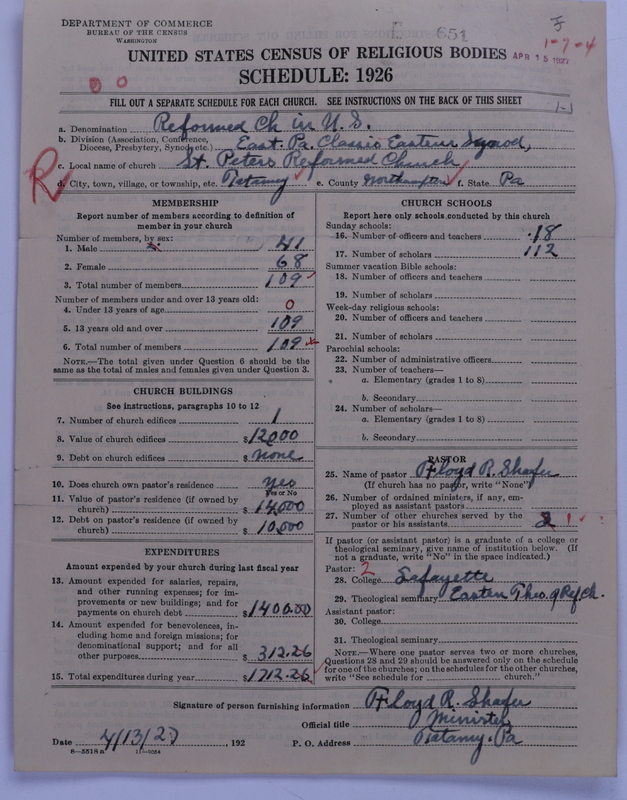 DEPARTMENT OF COMMERCE
BUREAU OF THE CENSUS
WASHINGTON
651
1-7-4
APR 15 1927
UNITED STATES CENSUS OF RELIGIOUS BODIES
SCHEDULE: 1926
0 0
FILL OUT A SEPARATE SCHEDULE FOR EACH CHURCH. SEE INSTRUCTIONS ON THE BACK OF THIS SHEET
1-1
a. Denomination Reformed Ch in U.S.
b. Division (Association, Conference, Diocese, Presbytery, Synod, etc.) East Pa. Classis Eastern Synod,
c. Local name of church St. Peters Reformed Church
R
d. City, town, village, or township, etc. Tatamy e. County Northampton f. State Pa
MEMBERSHIP
Report number of members according to definition of
member in your church
Number of members, by sex:
1. Male 41
2. Female 68
3. Total number of members 109
Number of members under and over 13 years old:
4. Under 13 years of age 0
5. 13 years old and over 109
6. Total number of members 109
NOTE.—The total given under Question 6 should be the
same as the total of males and females given under Question 3.
CHURCH BUILDINGS
See instructions, paragraphs 10 to 12
7. Number of church edifices 1
8. Value of church edifices $12000
9. Debt on church edifices $ none
10. Does church own pastor's residence yes
Yes or No
11. Value of pastor's residence (if owned by
church) $14,000
12. Debt on pastor's residence (if owned by
church) $10,000
EXPENDITURES
Amount expended by your church during last fiscal year
13. Amount expended for salaries, repairs,
and other running expenses; for im-
provements or new buildings; and for
payments on church debt $1400.00
14. Amount expended for benevolences, in-
cluding home and foreign missions; for
denominational support; and for all
other purposes $312.26
15. Total expenditures during year $1712.26
CHURCH SCHOOLS
Report here only schools conducted by this church
Sunday schools:
16. Number of officers and teachers 18
17. Number of scholars 112
Summer vacation Bible schools:
18. Number of officers and teachers
19. Number of scholars
Week-day religious schools:
20. Number of officers and teachers
21. Number of scholars
Parochial schools:
22. Number of administrative officers
23. Number of teachers—
a. Elementary (grades 1 to 8)
b. Secondary
24. Number of scholars—
a. Elementary (grades 1 to 8)
b. Secondary
PASTOR
25. Name of pastor Floyd R. Shafer
(If church has no pastor, write "None")
26. Number of ordained ministers, if any, em-
ployed as assistant pastors
27. Number of other churches served by the
pastor or his assistants 2
If pastor (or assistant pastor) is a graduate of a college or
theological seminary, give name of institution below. (If
not a graduate, write "No" in the space indicated.)
Pastor: 2
28. College Lafayette
29. Theological seminary Eastern Theo. of Ref Ch.
Assistant pastor:
30. College
31. Theological seminary
NOTE.—Where one pastor serves two or more churches,
Questions 28 and 29 should be answered only on the schedule
for one of the churches; on the schedules for the other churches,
write "See schedule for church."
Signature of person furnishing information Floyd R. Shafer
Official title Minister
Date 4/13/27, 192 P. O. Address Tatamy. Pa
8—5518 a 11—9084